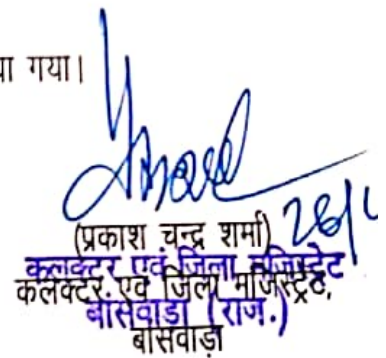 या गया।
26/
(प्रकाश चन्द्र शर्मा)
कलक्टर एवं जिला मजिस्ट्रेट
कलक्टर एवं जिला मजिस्ट्रेट,
बांसवाडा (राज.)
बांसवाड़ा